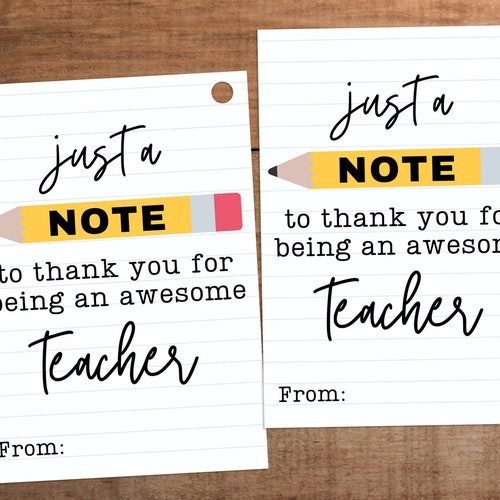 just a
NOTE
to thank you for
being an awesome
teacher
From:
just a
NOTE
to thank you fo
being an awesom
teacher
From: